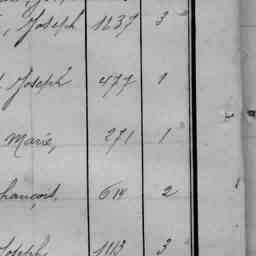 , Joseph 1237 3
Joseph 477 1
Marie, 271 1
François, 614 2
Joseph 1113 3